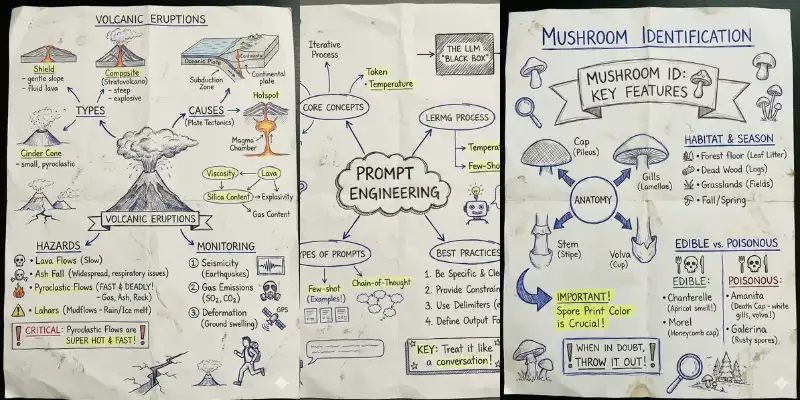 VOLCANIC ERUPTIONS
Shield
- gentle slope
- fluid lava
Composite
(Stratovolcano)
- steep
- explosive
Oceanic Plate
Continental
Subduction
Zone
Continental
plate
TYPES
CAUSES
(Plate Tectonics)
Hotspot
Magma
Chamber
Cinder Cone
- small, pyroclastic
Viscosity
Lava
Silica Content
Explosivity
Gas Content
VOLCANIC ERUPTIONS
HAZARDS
• Lava Flows (Slow)
• Ash Fall (Widespread, respiratory issues)
• Pyroclastic Flows (FAST & DEADLY!
- Gas, Ash, Rock)
• Lahars (Mudflows - Rain/Ice melt)
CRITICAL: Pyroclastic Flows are
SUPER HOT & FAST!
MONITORING
1 Seismicity
(Earthquakes)
2 Gas Emissions
(SO₂, CO₂)
3 Deformation
(Ground swelling)
GPS
Iterative
Process
THE LLM
"BLACK BOX"
• Token
• Temperature
CORE CONCEPTS
LERMG PROCESS
• Tempera
• Few-Sho
PROMPT
ENGINEERING
YPES OF PROMPTS
Few-shot
(Examples!)
Chain-of-Thought
BEST PRACTICES
1. Be Specific & Cle
2. Provide Constrain
3. Use Delimiters (e
4. Define Output Fo
KEY: Treat it like
a conversation!
MUSHROOM IDENTIFICATION
MUSHROOM ID:
KEY FEATURES
Cap
(Pileus)
Gills
(Lamelloe)
ANATOMY
Stem
(Stipe)
Volva
(Cup)
HABITAT & SEASON
• Forest floor (Leaf Litter)
• Dead Wood (Logs)
• Grasslands (Fields)
• Fall/Spring
IMPORTANT!
Spore Print Color
is Crucial!
EDIBLE vs. POISONOUS
EDIBLE:
• Chanterelle
(Apricot smell!)
• Morel
(Honeycomb cap)
POISONOUS:
• Amanita
(Death Cap - white
gills, volva!)
• Galerina
(Rusty spores).
WHEN IN DOUBT,
THROW IT OUT!